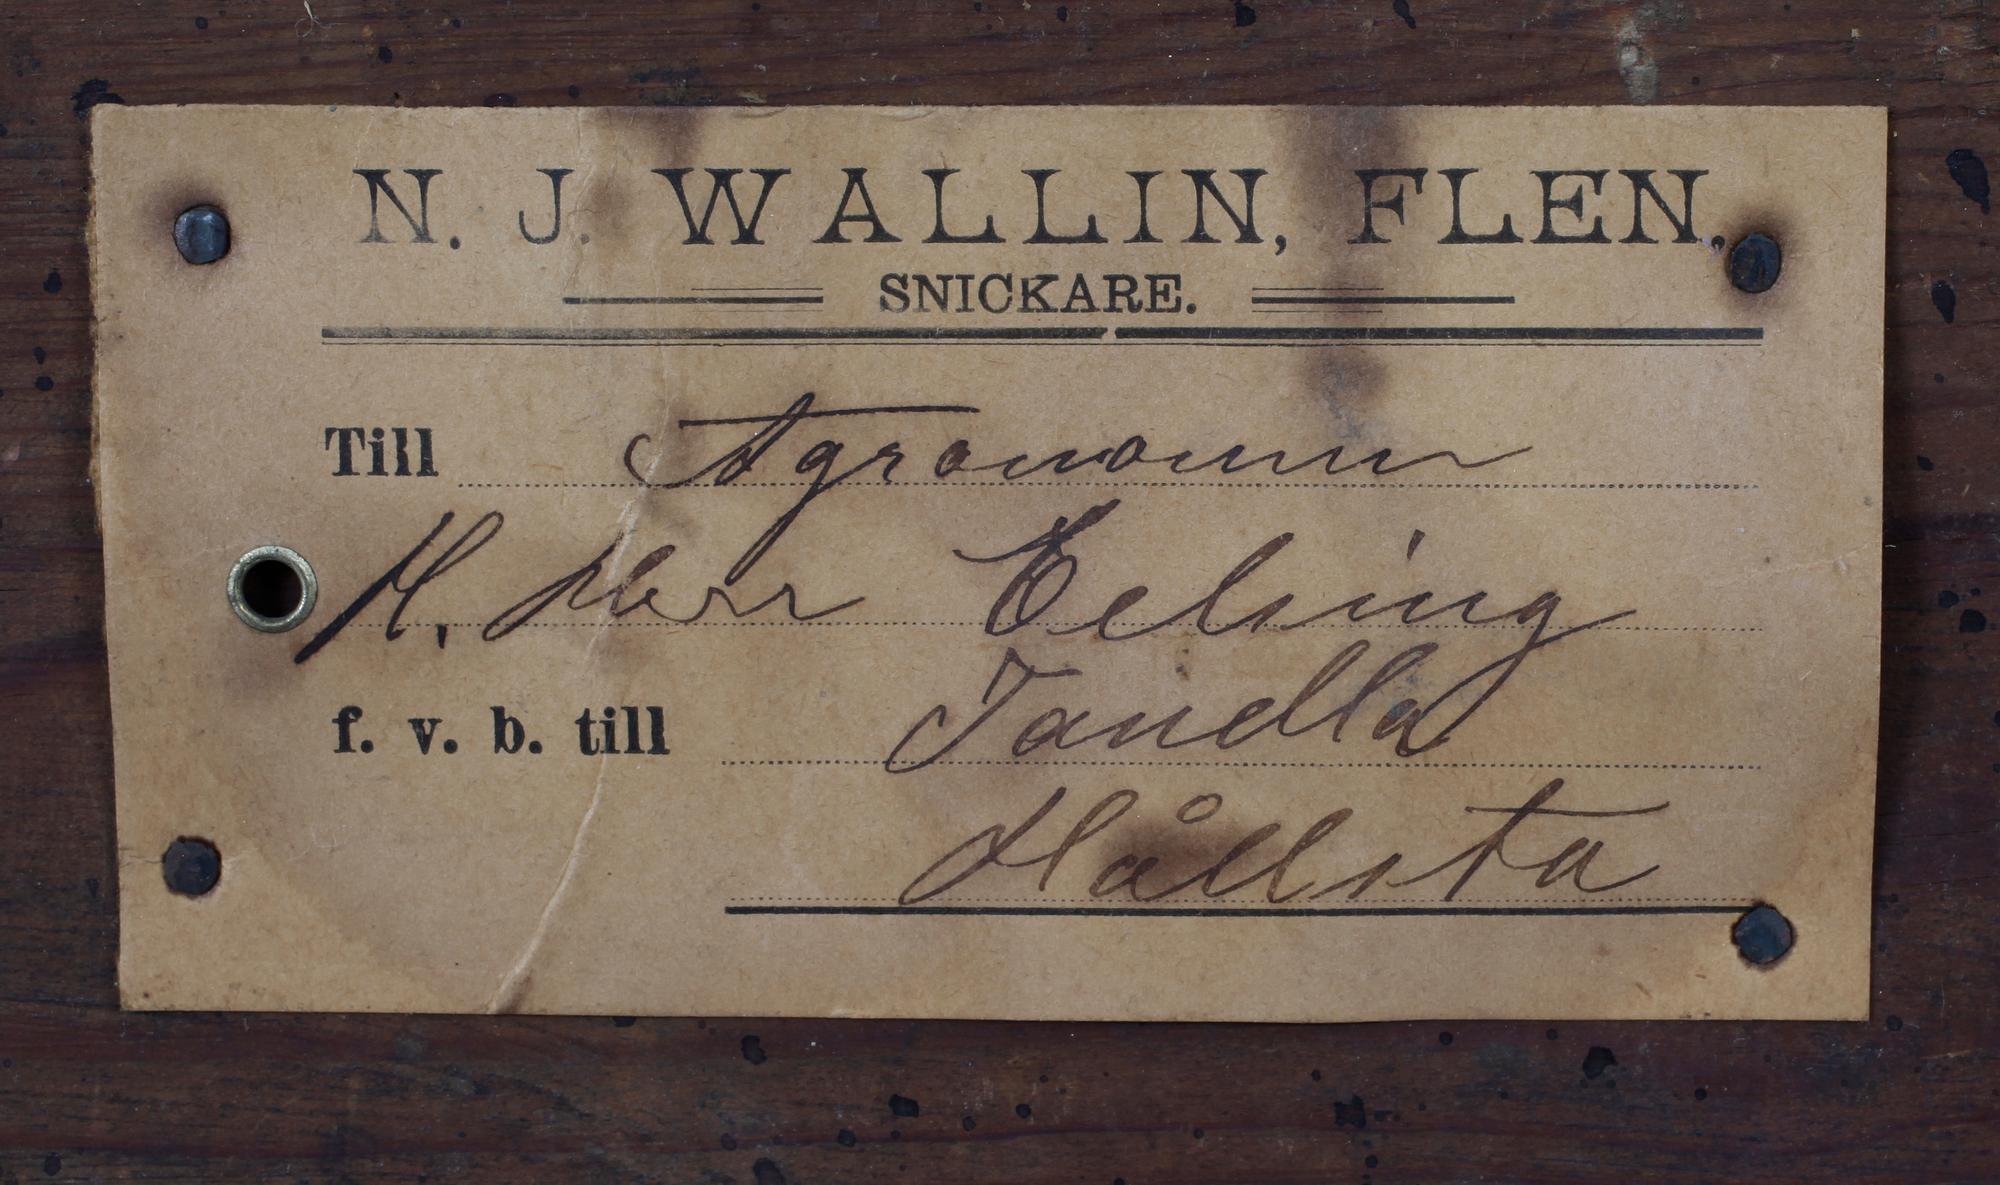 N. J. WALLIN, FLEN.
SNICKARE.
Till Agronomen
H. Herr Eeling
f. v. b. till Tandla
Hållsta